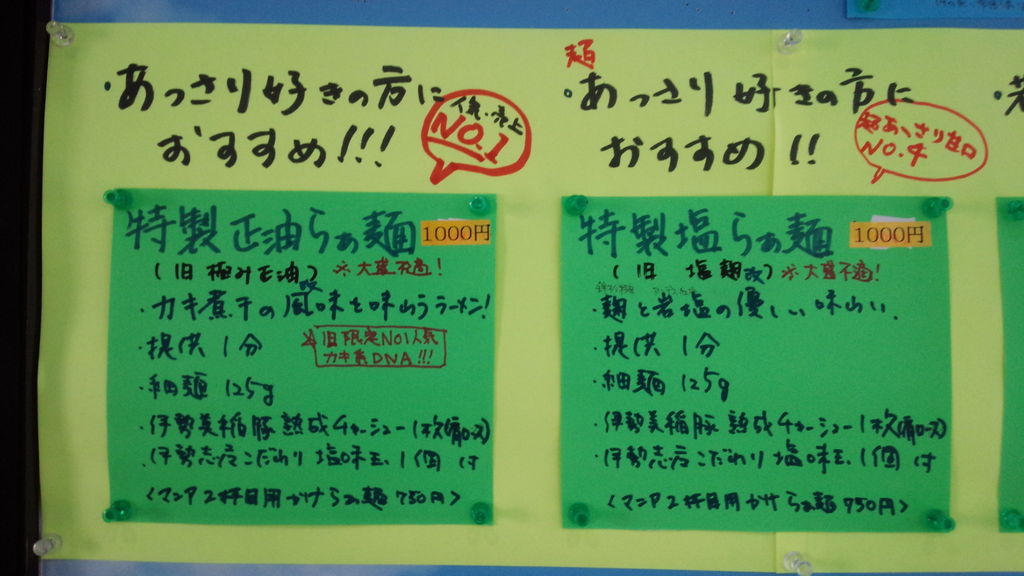 ・あっさり好きの方に
おすすめ!!!
NO.1
特製正油らぁ麺 1000円
(旧 極み正油改) ※大盛不適!
・カキ煮干の風味を味わうラーメン!
・提供 1分
※旧限定NO1人気
カキ煮DNA!!!
・細麺 125g
・伊勢美稲豚 熟成チャーシュー(枚肩ロース)
・伊勢志摩こだわり 塩味玉 1個 付
<マニア2杯目用かけらぁ麺 750円>
超
・あっさり好きの方に
おすすめ!!
超あっさり甘口
NO.4
特製塩らぁ麺 1000円
(旧 塩麹改) ※大盛不適!
・麹と岩塩の優しい味わい.
・提供 1分
・細麺 125g
・伊勢美稲豚 熟成チャーシュー(枚肩ロース)
・伊勢志摩こだわり 塩味玉 1個 付
<マニア2杯目用かけらぁ麺 750円>